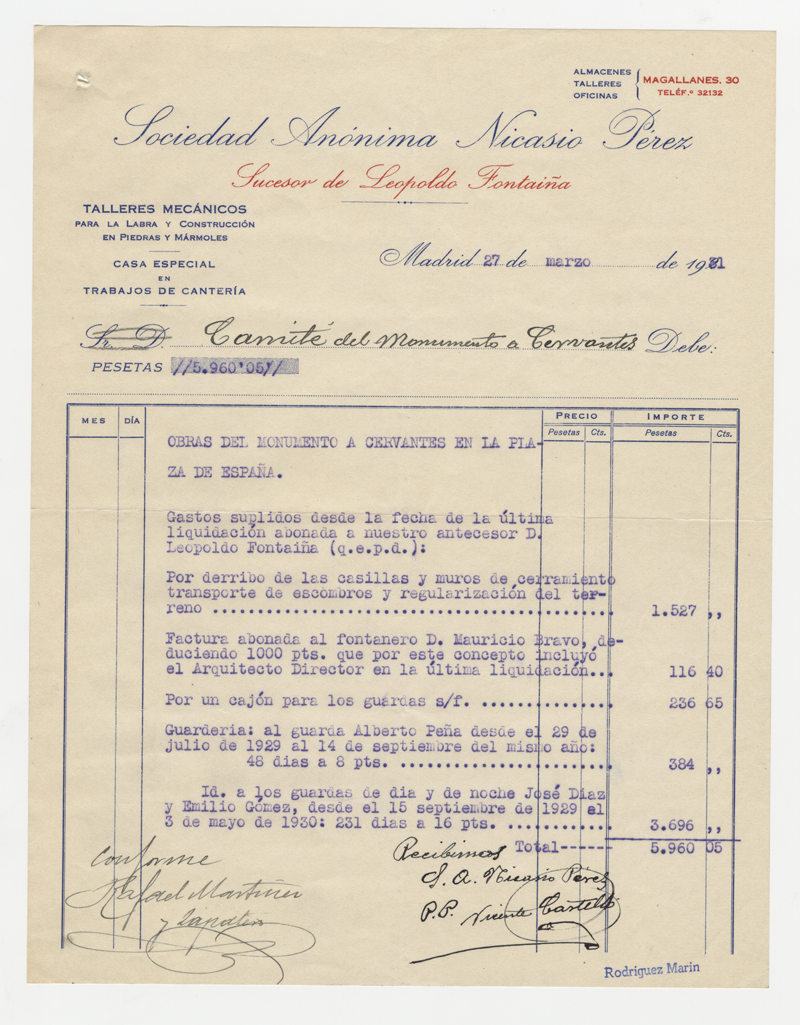 ALMACENES
TALLERES
OFICINAS
MAGALLANES. 30
TELÉF.º 32132
Sociedad Anónima Nicasio Pérez
Sucesor de Leopoldo Fontaiña
TALLERES MECÁNICOS
PARA LA LABRA Y CONSTRUCCIÓN
EN PIEDRAS Y MÁRMOLES
CASA ESPECIAL
EN
TRABAJOS DE CANTERÍA
Madrid 27 de marzo de 1931
Sr. D. Camité del Monumento a Cervantes Debe:
PESETAS //5.960'05//
MES DÍA PRECIO IMPORTE
Pesetas Cts. Pesetas Cts.
OBRAS DEL MONUMENTO A CERVANTES EN LA PLA-
ZA DE ESPAÑA.
Gastos suplidos desde la fecha de la última
liquidación abonada a nuestro antecesor D.
Leopoldo Fontaiña (q.e.p.d.):
Por derribo de las casillas y muros de cerramiento
transporte de escombros y regularización del ter-
reno ............................................. 1.527 ,,
Factura abonada al fontanero D. Mauricio Bravo, de-
duciendo 1000 pts. que por este concepto incluyó
el Arquitecto Director en la última liquidación... 116 40
Por un cajón para los guardas s/f. ............... 236 65
Guarderia: al guarda Alberto Peña desde el 29 de
julio de 1929 al 14 de septiembre del mismo año:
48 dias a 8 pts. ........................ 384 ,,
Id. a los guardas de dia y de noche José Diaz
y Emilio Gómez, desde el 15 septiembre de 1929 el
3 de mayo de 1930: 231 dias a 16 pts. ............ 3.696 ,,
Total------ 5.960 05
Conforme
Rafael Martínez
y Zapatero
Recibimos
S. A. Nicasio Pérez
P.P. Vicente Castelló
Rodriguez Marin